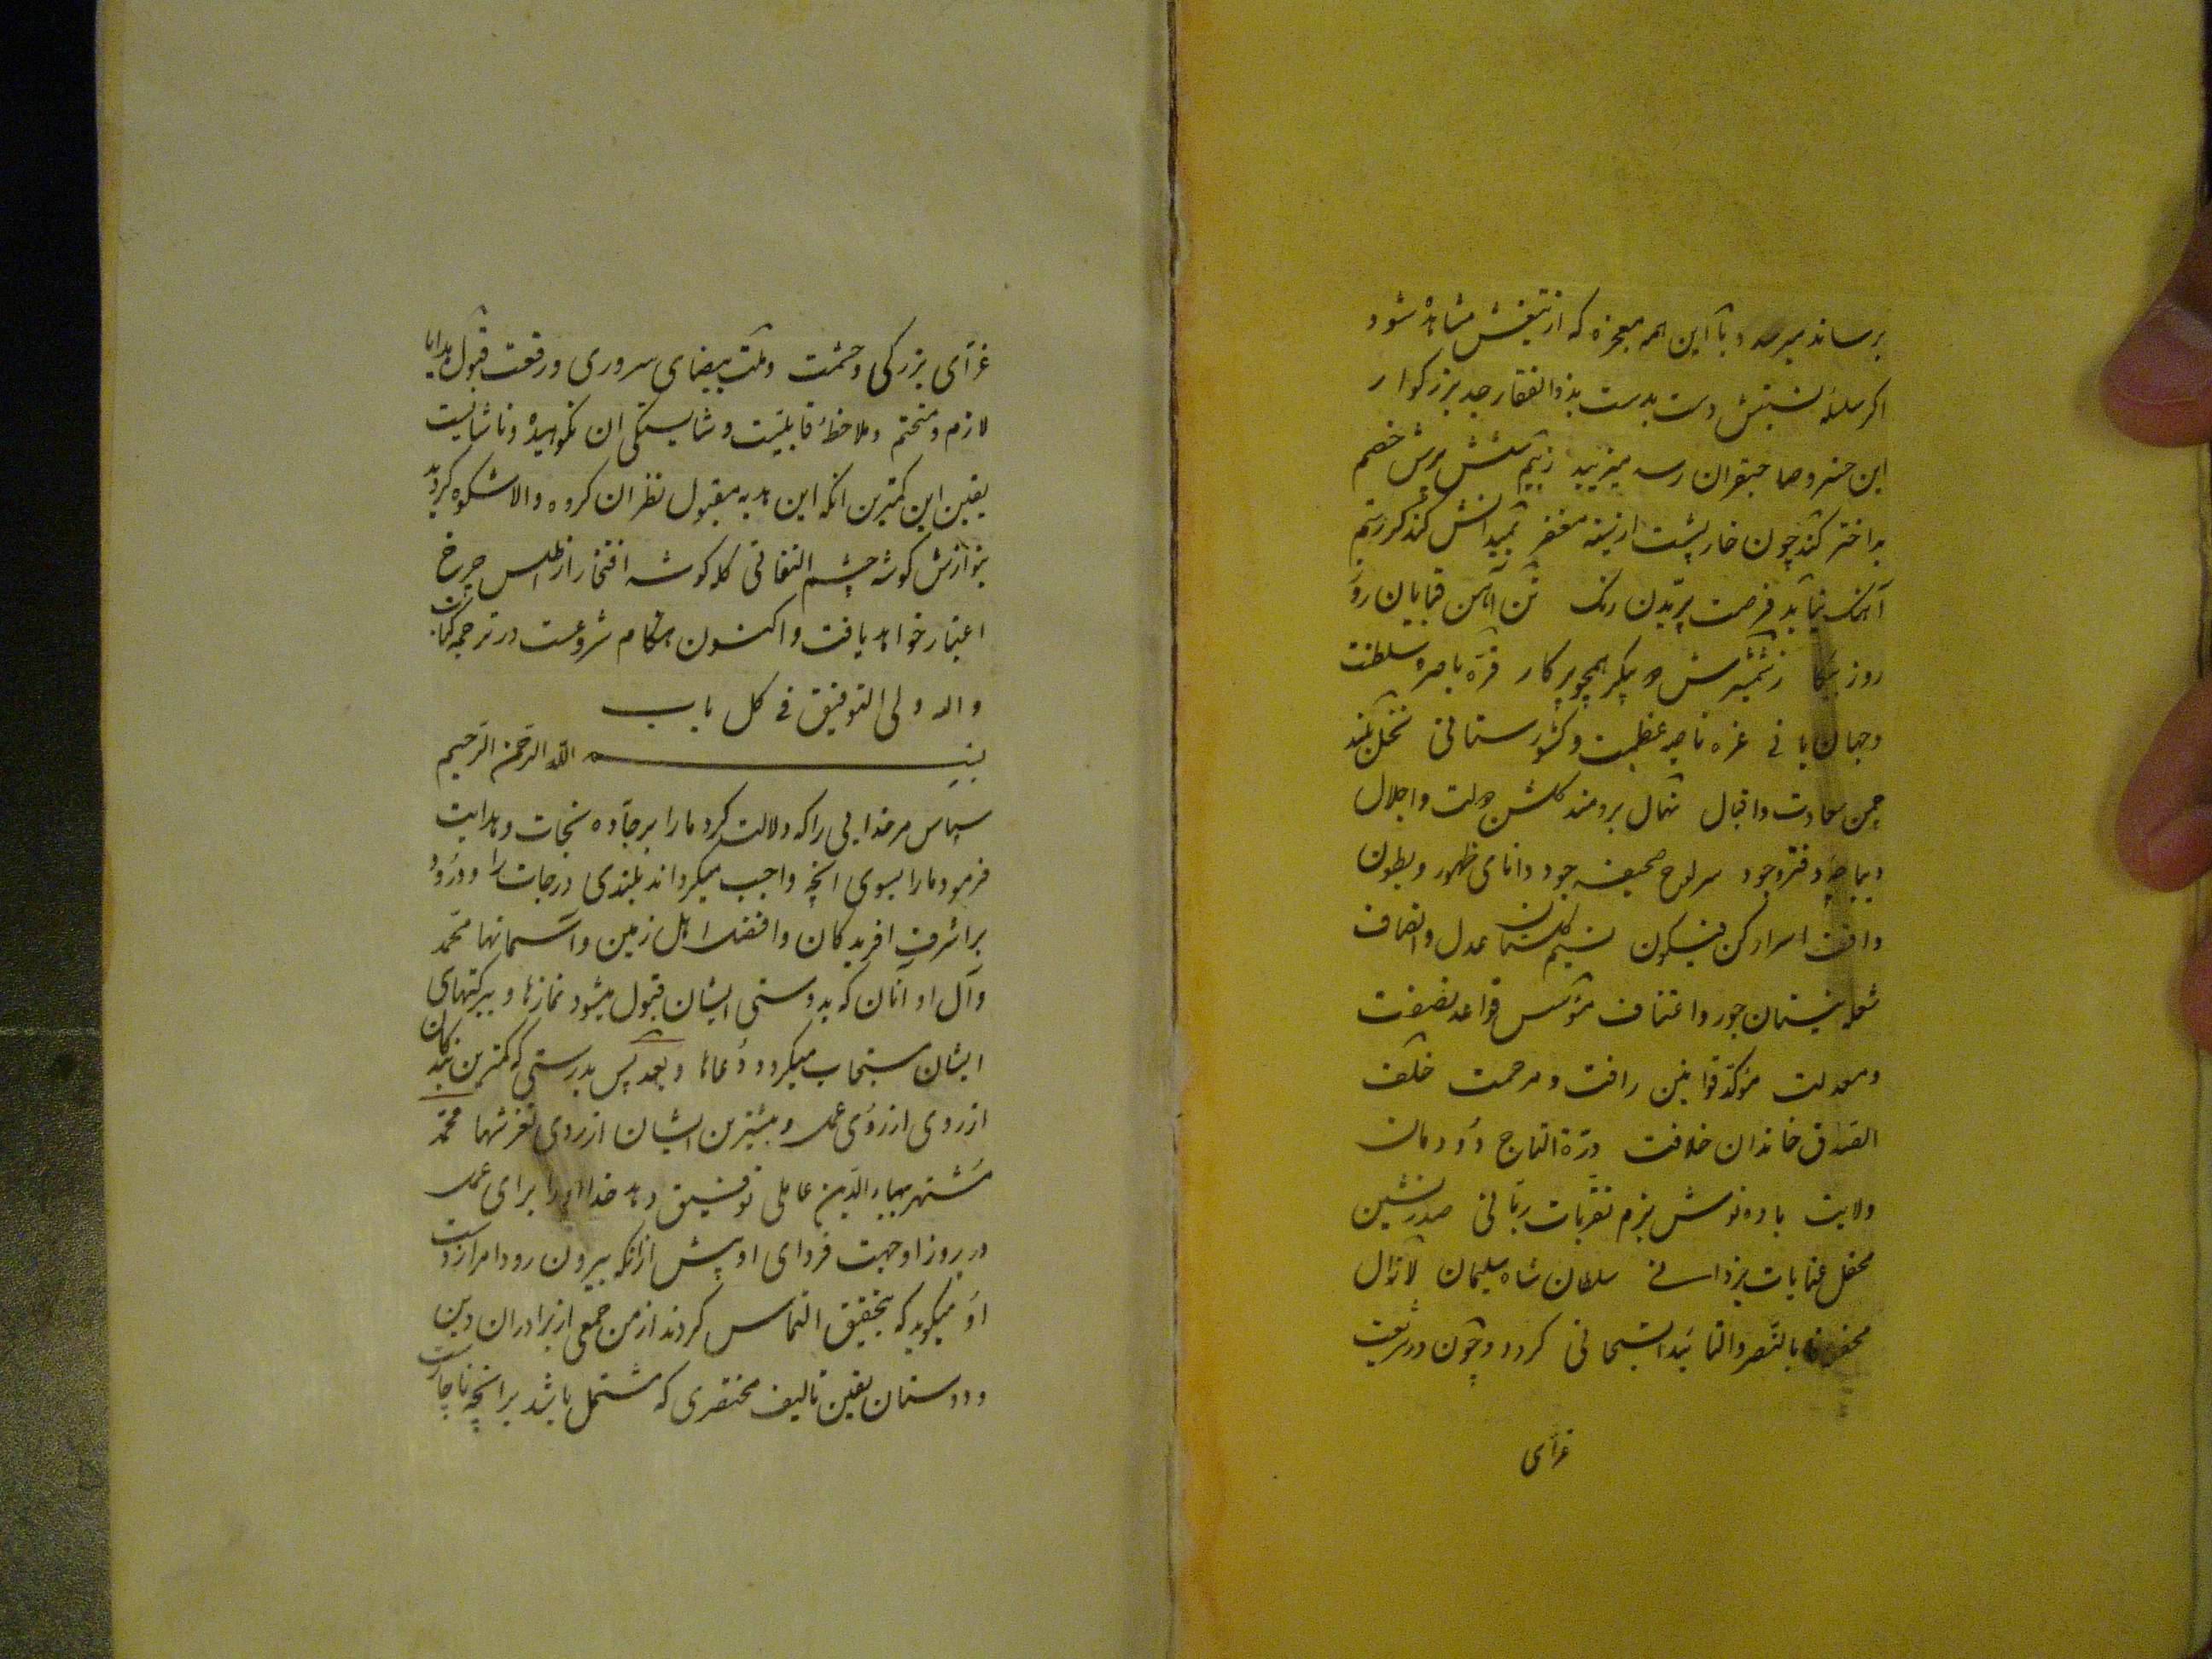 برساند میرسد و با این همه معجزه که از تیغش مشاهده شود
اکر سلسله نسبتش دست بدست بذوالفقار جد بزرکوار
این خسرو صاحبقران رسد میزیبد زبیم خصم
بد اختر کند چون خارپشت از مغفر کند کر رستم
آهنک نیابد فرصت پریدن رنک تن آهن قبایان رو
روز زشمشیرش دو پیکر همچو پرکار قره باصره سلطنت
وجهان بانی غره ناصیه عظمت و کشورستانی نخل بلند
چمن سعادت و اقبال نهال برومند کلشن دولت واجلال
دیباچه دفتر وجود سرلوح صحیفه جود دانای ظهور و بطون
واقف اسرار کن فیکون نسیم کلستان عدل وانصاف
شعله نیستان جور واعتساف مؤسس قواعد نصفت
ومعدلت مؤکد قوانین رافت ومرحمت خلف
الصدق خاندان خلافت درة التاج دودمان
ولایت باده نوش بزم تقربات ربانی صدرنشین
محفل عنایات یزدانی سلطان شاه سلیمان لازال
محفوفا بالنصر والتایید السبحانی کردد و چون در شریعت
غرای
غرای بزرکی وحشمت وملت بیضای سروری ورفعت قبول هدایا
لازم ومتحتم وملاحظه قابلیت وشایستکی ان نکوهیده وناشایست
یقین این کمترین انکه این هدیه مقبول نظر ان کروه والاشکوه کردید
بنوازش کوشه چشم التفاتی کله کوشه افتخار از اطلس چرخ
اعتبار خواهد یافت واکنون هنکام شروعست در ترجمه کتاب
والله ولی التوفیق فی کل باب
بسم الله الرحمن الرحیم
سپاس مر خدایی را که دلالت کرد ما را بر جاده نجات وهدایت
فرمود ما را بسوی انچه واجب میکرداند بلندی درجات را ودرود
بر اشرف افریدکان وافضل اهل زمین وآسمانها محمد
وآل او آنان که بدوستی ایشان قبول میشود نمازها و ببرکتهای
ایشان مستجاب میکردد دعاها وبعد پس بدرستی که کمترین بندکان
از روی عمل و بیشترین ایشان از روی لغزشها محمد
مشتهر ببهاءالدین عاملی توفیق دهد خدا او را برای عمل
در روز او جهت فردای او پیش ازانکه بیرون رود امر از دست
او میکوید که بتحقیق التماس کردند از من جمعی از برادران دین
ودوستان یقین تالیف مختصری که مشتمل باشد بر انچه ناچارست